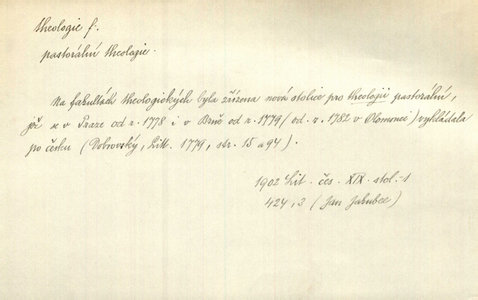 theologie f.
pastorální theologie.
Na fakultách theologických byla zřízena nová stolice pro theologii pastorální,
jež se v Praze od r. 1778 i v Brně od r. 1779 (od r. 1782 v Olomouci) vykládala
po česku (Dobrovský, Litt. 1779, str. 15 a 94).
1902 Lit. čes. XIX. stol.-1
424,3 (Jan Jakubec)